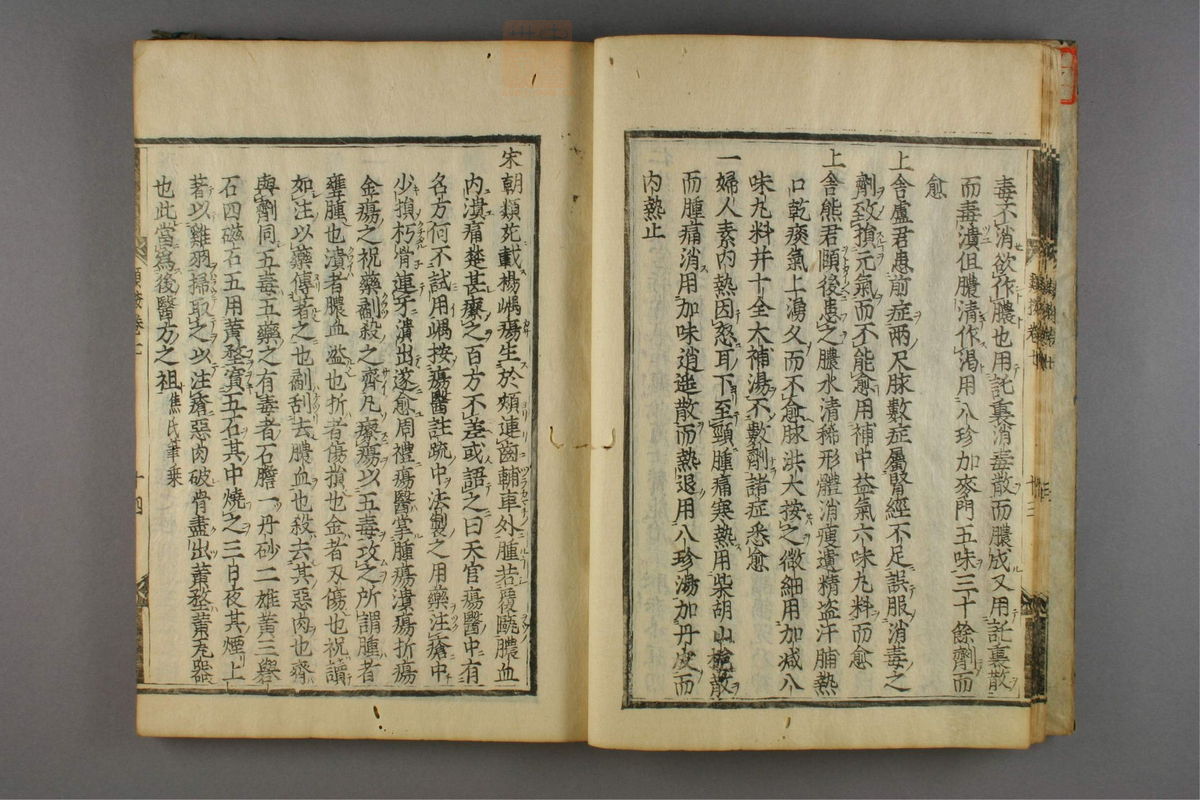 毒不消欲作膿也用託裏消毒散而膿成又用託裏散
而毒潰但膿清作渴用八珍加麥門五味三十餘劑而
愈
上舍盧君患前症兩尺脉數症屬腎經不足誤服消毒之
劑致損元氣而不能愈用補中益氣六味丸料而愈
上舍熊君頤後患之膿水清稀形體消瘦遺精盗汗脯熱
口乾痰氣上湧久而不愈脉洪大按之微細用加減八
味丸料并十全大補湯不數劑諸症悉愈
一婦人素內熱因怒耳下至頸腫痛寒熱用柴胡山梔散
而腫痛消用加味逍遙散而熱退用八珍湯加丹皮而
內熱止
宋朝類苑載楊嵎瘍生於頰連齒輔車外腫若覆甌膿血
内潰痛楚甚療之百方不差或語之曰天官瘍醫中有
名方何不試用嵎按瘍醫註疏中法製之用藥注瘡中
少損朽骨連牙潰出遂愈周禮瘍醫掌腫瘍潰瘍折瘍
金瘍之祝藥劀殺之齊凡療瘍以五毒攻之所謂腫者
壅腫也潰者膿血溢也折者傷損也金者刃傷也祝讀
如注以藥傅著之也劀刮去膿血也殺去其惡肉也齊
與劑同五毒五藥之有毒者石膽一丹砂二雄黃三礜
石四磁石五用黃堥寘五石其中燒之三日夜其煙上
著以雞羽掃取之以注瘡惡肉破骨盡出黄堥黄瓦器
也此當爲後醫方之祖焦氏筆乘
十四